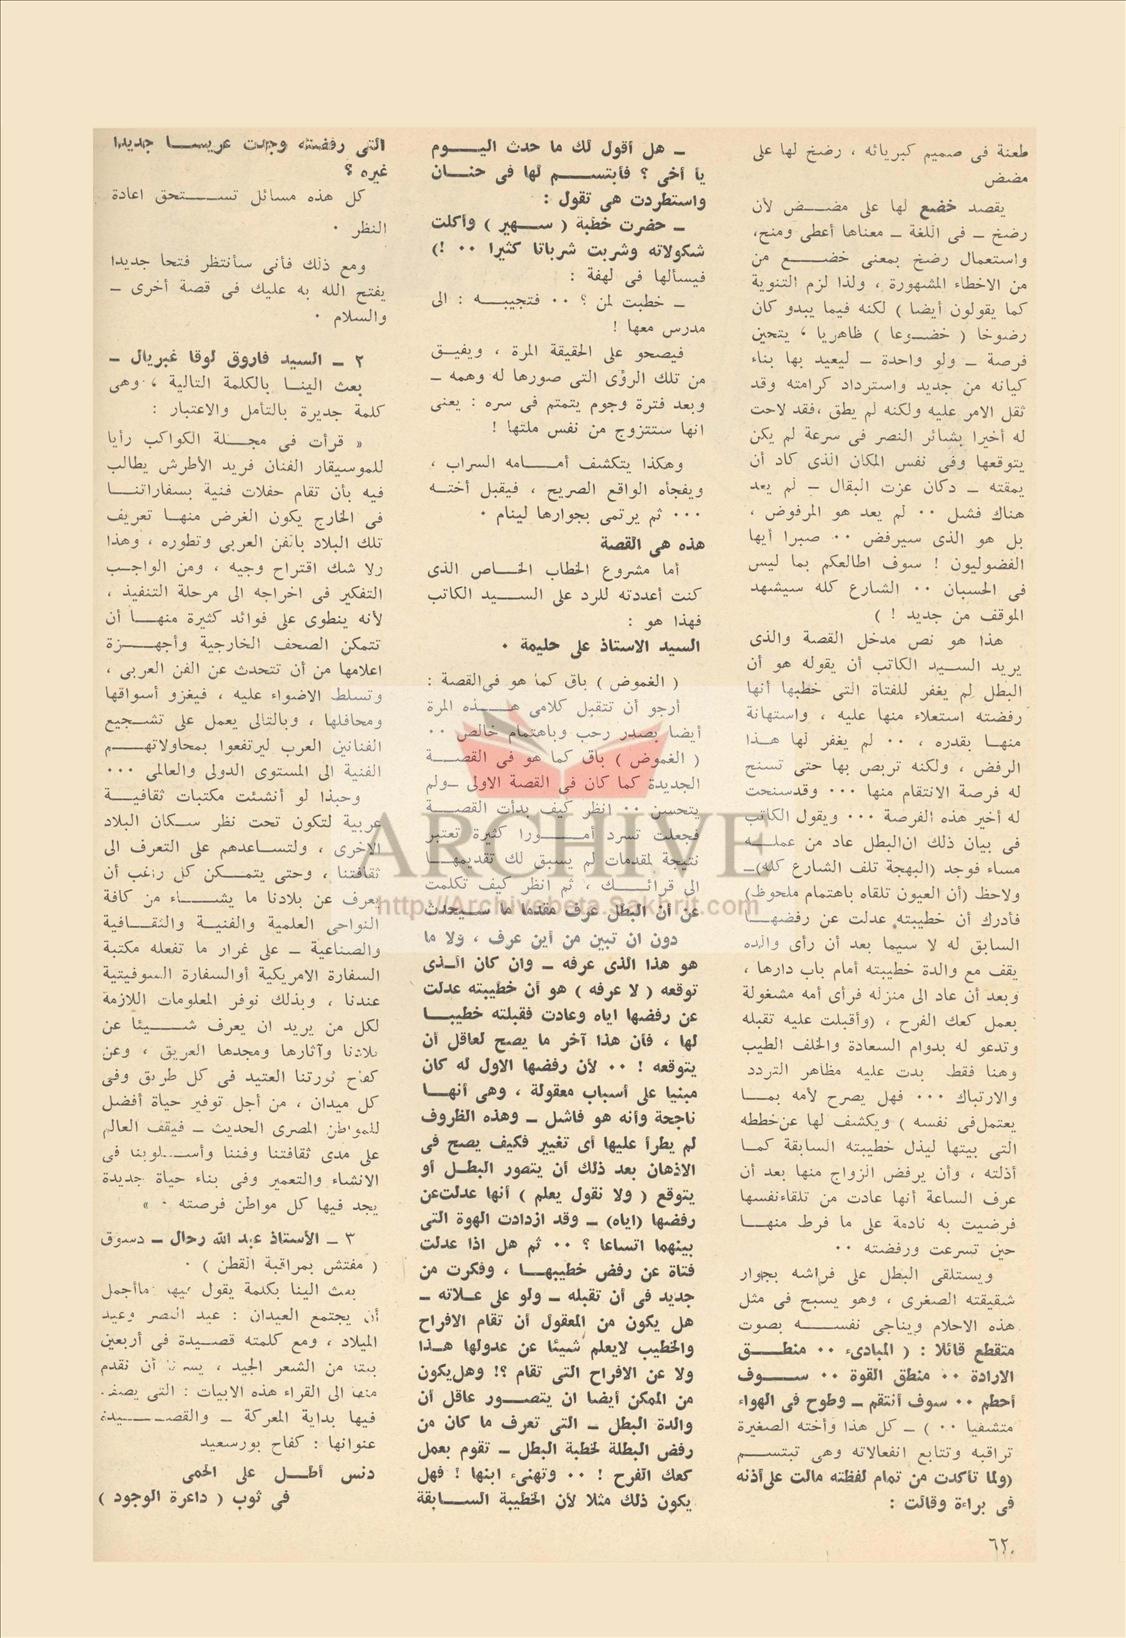 طعنة فى صميم كبريائه ، رضخ لها على
مضض
يقصد خضع لها على مضض لأن
رضخ ــ فى اللغة ــ معناها أعطى ومنح،
واستعمال رضخ بمعنى خضع من
من الاخطاء المشهورة ، ولذا لزم التنوية
كما يقولون أيضا ) لكنه فيما يبدو كان
رضوخا ( خضوعا ) ظاهريا ، يتحين
فرصة ــ ولو واحدة ــ ليعيد بها بناء
كيانه من جديد واسترداد كرامته وقد
ثقل الامر عليه ولكنه لم يطق ،فقد لاحت
له أخيرا بشائر النصر فى سرعة لم يكن
يتوقعها وفى نفس المكان الذى كاد أن
يمقته ــ دكان عزت البقال ــ لم يعد
هناك فشل ٠٠ لم يعد هو المرفوض ،
بل هو الذى سيرفض ٠٠ صبرا أيها
الفضوليون ! سوف اطالعكم بما ليس
فى الحسبان ٠٠ الشارع كله سيشهد
الموقف من جديد ! )
هذا هو نص مدخل القصة والذى
يريد السيد الكاتب أن يقوله هو أن
البطل لم يغفر للفتاة التى خطبها أنها
رفضته استعلاء منها عليه ، واستهانة
منها بقدره ، ٠٠ لم يغفر لها هذا
الرفض ، ولكنه تربص بها حتى تسنح
له فرصة الانتقام منها ٠٠٠ وقدسنحت
له أخير هذه الفرصة ٠٠٠ ويقول الكاتب
فى بيان ذلك ان البطل عاد من عمله
مساء فوجد (البهجة تلف الشارع كله)ــ
ولاحظ (أن العيون تلقاه باهتمام ملحوظ)
فأدرك أن خطيبته عدلت عن رفضها
السابق له لا سيما بعد أن رأى والده
يقف مع والدة خطيبته أمام باب دارها ،
وبعد أن عاد الى منزله فرأى أمه مشغولة
بعمل كعك الفرح ، (وأقبلت عليه تقبله
وتدعو له بدوام السعادة والخلف الطيب
وهنا فقط بدت عليه مظاهر التردد
والارتباك ٠٠٠ فهل يصرح لأمه بما
يعتمل فى نفسه ) ويكشف لها عن خططه
التى بيتها ليذل خطيبته السابقة كما
أذلته ، وأن يرفض الزواج منها بعد أن
عرف الساعة أنها عادت من تلقاءنفسها
فرضيت به نادمة على ما فرط منها
حين تسرعت ورفضته ٠٠
ويستلقى البطل على فراشه بجوار
شقيقته الصغرى ، وهو يسبح فى مثل
هذه الاحلام ويناجى نفسه بصوت
متقطع قائلا : ( المبادىء ٠٠ منطق
الارادة ٠٠ منطق القوة ٠٠ سوف
أحطم ٠٠ سوف أنتقم ــ وطوح فى الهواء
متشفيا ٠٠ ) ــ كل هذا وأخته الصغيرة
تراقبه وتتابع انفعالاته وهى تبتسم
(ولما تأكدت من تمام لفظته مالت على أذنه
فى براءة وقالت :
ــ هل أقول لك ما حدث اليوم
يأ أخى ؟ فأبتسم لها فى حنان
واستطردت هى تقول :
ــ حضرت خطبة ( سهير ) وأكلت
شكولاته وشربت شرباتا كثيرا ٠٠ !)
فيسألها فى لهفة :
ــ خطبت لمن ؟ ٠٠ فتجيبه : الى
مدرس معها !
فيصحو على الحقيقة المرة ، ويفيق
من تلك الرؤى التى صورها له وهمه ــ
وبعد فترة وجوم يتمتم فى سره : يعنى
انها ستتزوج من نفس ملتها !
وهكذا يتكشف أمامه السراب ،
ويفجأه الواقع الصريح ، فيقبل أخته
٠٠٠ ثم يرتمى بجوارها لينام ٠
هذه هى القصة
أما مشروع الخطاب الخاص الذى
كنت أعددته للرد على السيد الكاتب
فهذا هو :
السيد الاستاذ على حليمة ٠
( الغموض ) باق كما هو فى القصة :
أرجو أن تتقبل كلامى هذه المرة
أيضا بصدر رحب وباهتمام خالص ٠٠
( الغموض ) باق كما هو فى القصة
الجديدة كما كان فى القصة الاولى ــولم
يتحسن ٠٠ انظر كيف بدأت القصة
فجعلت تسرد أمورا كثيرة تعتبر
نتيجة لمقدمات لم يسبق لك تقديمها
الى قرائك ، ثم انظر كيف تكلمت
عن أن البطل عرف مقدما ما سيحدث
دون ان تبين من أين عرف ، ولا ما
هو هذا الذى عرفه ــ وان كان الذى
توقعه ( لا عرفه ) هو أن خطيبته عدلت
عن رفضها اياه وعادت فقبلته خطيبا
لها ، فأن هذا آخر ما يصح لعاقل أن
يتوقعه ! ٠٠ لأن رفضها الاول له كان
مبنيا على أسباب معقولة ، وهى أنها
ناجحة وأنه هو فاشل ــ وهذه الظروف
لم يطرأ عليها أى تغيير فكيف يصح فى
الاذهان بعد ذلك أن يتصور البطل أو
يتوقع ( ولا نقول يعلم ) أنها عدلت عن
رفضها (اياه) ــ وقد ازدادت الهوة التى
بينهما اتساعا ؟ ٠٠ ثم هل اذا عدلت
فتاة عن رفض خطيبها ، وفكرت من
جديد فى أن تقبله ــ ولو على علاته ــ
هل يكون من المعقول أن تقام الافراح
والخطيب لايعلم شيئا عن عدولها هذا
ولا عن الافراح التى تقام ؟! وهل يكون
من الممكن أيضا ان يتصور عاقل أن
والدة البطل ــ التى تعرف ما كان من
رفض البطلة لخطبة البطل ــ تقوم بعمل
كعك الفرح ! ٠٠ وتهنىء ابنها ! فهل
يكون ذلك مثلا لأن الخطيبة السابقة
التى رفضته وجدت عريسا جديدا
غيره ؟
كل هذه مسائل تستحق اعادة
النظر ٠
ومع ذلك فأنى سأنتظر فتحا جديدا
يفتح الله به عليك فى قصة أخرى ــ
والسلام ٠
٢ ــ السيد فاروق لوقا غبريال ــ
بعث الينا بالكلمة التالية ، وهى
كلمة جديرة بالتأمل والاعتبار :
« قرأت فى مجلة الكواكب رأيا
للموسيقار الفنان فريد الأطرش يطالب
فيه بأن تقام حفلات فنية بسفاراتنا
فى الخارج يكون الغرض منها تعريف
تلك البلاد بالفن العربى وتطوره ، وهذا
لا شك اقتراح وجيه ، ومن الواجب
التفكير فى اخراجه الى مرحلة التنفيذ ،
لأنه ينطوى على فوائد كثيرة منها أن
تتمكن الصحف الخارجية وأجهزة
اعلامها من أن تتحدث عن الفن العربى ،
وتسلط الاضواء عليه ، فيغزو أسواقها
ومحافلها ، وبالتالى يعمل على تشجيع
الفنانين العرب ليرتفعوا بمحاولاتهم
الفنية الى المستوى الدولى والعالمى ٠٠٠
وحبذا لو أنشئت مكتبات ثقافية
عربية لتكون تحت نظر سكان البلاد
الاخرى ، ولتساعدهم على التعرف الى
ثقافتنا ، وحتى يتمكن كل راغب أن
يعرف عن بلادنا ما يشاء من كافة
النواحى العلمية والفنية والثقافية
والصناعية ــ على غرار ما تفعله مكتبة
السفارة الامريكية أوالسفارة السوفيتية
عندنا ، وبذلك نوفر المعلومات اللازمة
لكل من يريد ان يعرف شيئا عن
بلادنا وآثارها ومجدها العريق ، وعن
كفاح ثورتنا العتيد فى كل طريق وفى
كل ميدان ، من أجل توفير حياة أفضل
للمواطن المصرى الحديث ــ فيقف العالم
على مدى ثقافتنا وفننا وأسلوبنا فى
الانشاء والتعمير وفى بناء حياة جديدة
يجد فيها كل مواطن فرصته ٠ »
٣ ــ الأستاذ عبد الله رحال ــ دسوق
( مفتش بمراقبة القطن ) ٠
بعث الينا بكلمة يقول فيها ماأجمل
أن يجتمع العيدان : عيد النصر وعيد
الميلاد ، ومع كلمته قصيدة فى أربعين
بيتا من الشعر الجيد ، يسرنا أن نقدم
منها الى القراء هذه الابيات : التى يصف
فيها بداية المعركة ــ والقصيدة
عنوانها : كفاح بورسعيد
دنس أطل على الحمى
فى ثوب ( داعرة الوجود )
٦٢٠
ARCHIVE
http://Archivebeta.Sakhrit.com